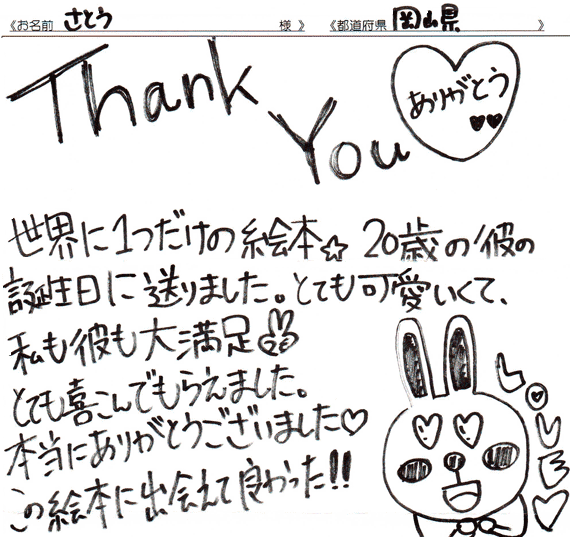 《お名前 さとう 様 》 《都道府県 岡山県 》
Thank
You
ありがとう♥♥
世界に1つだけの絵本☆ 20歳の彼の
誕生日に送りました。とても可愛いくて、
私も彼も大満足✌
とても喜こんでもらえました。
本当にありがとうございました♡
この絵本に出会えて良かった!!